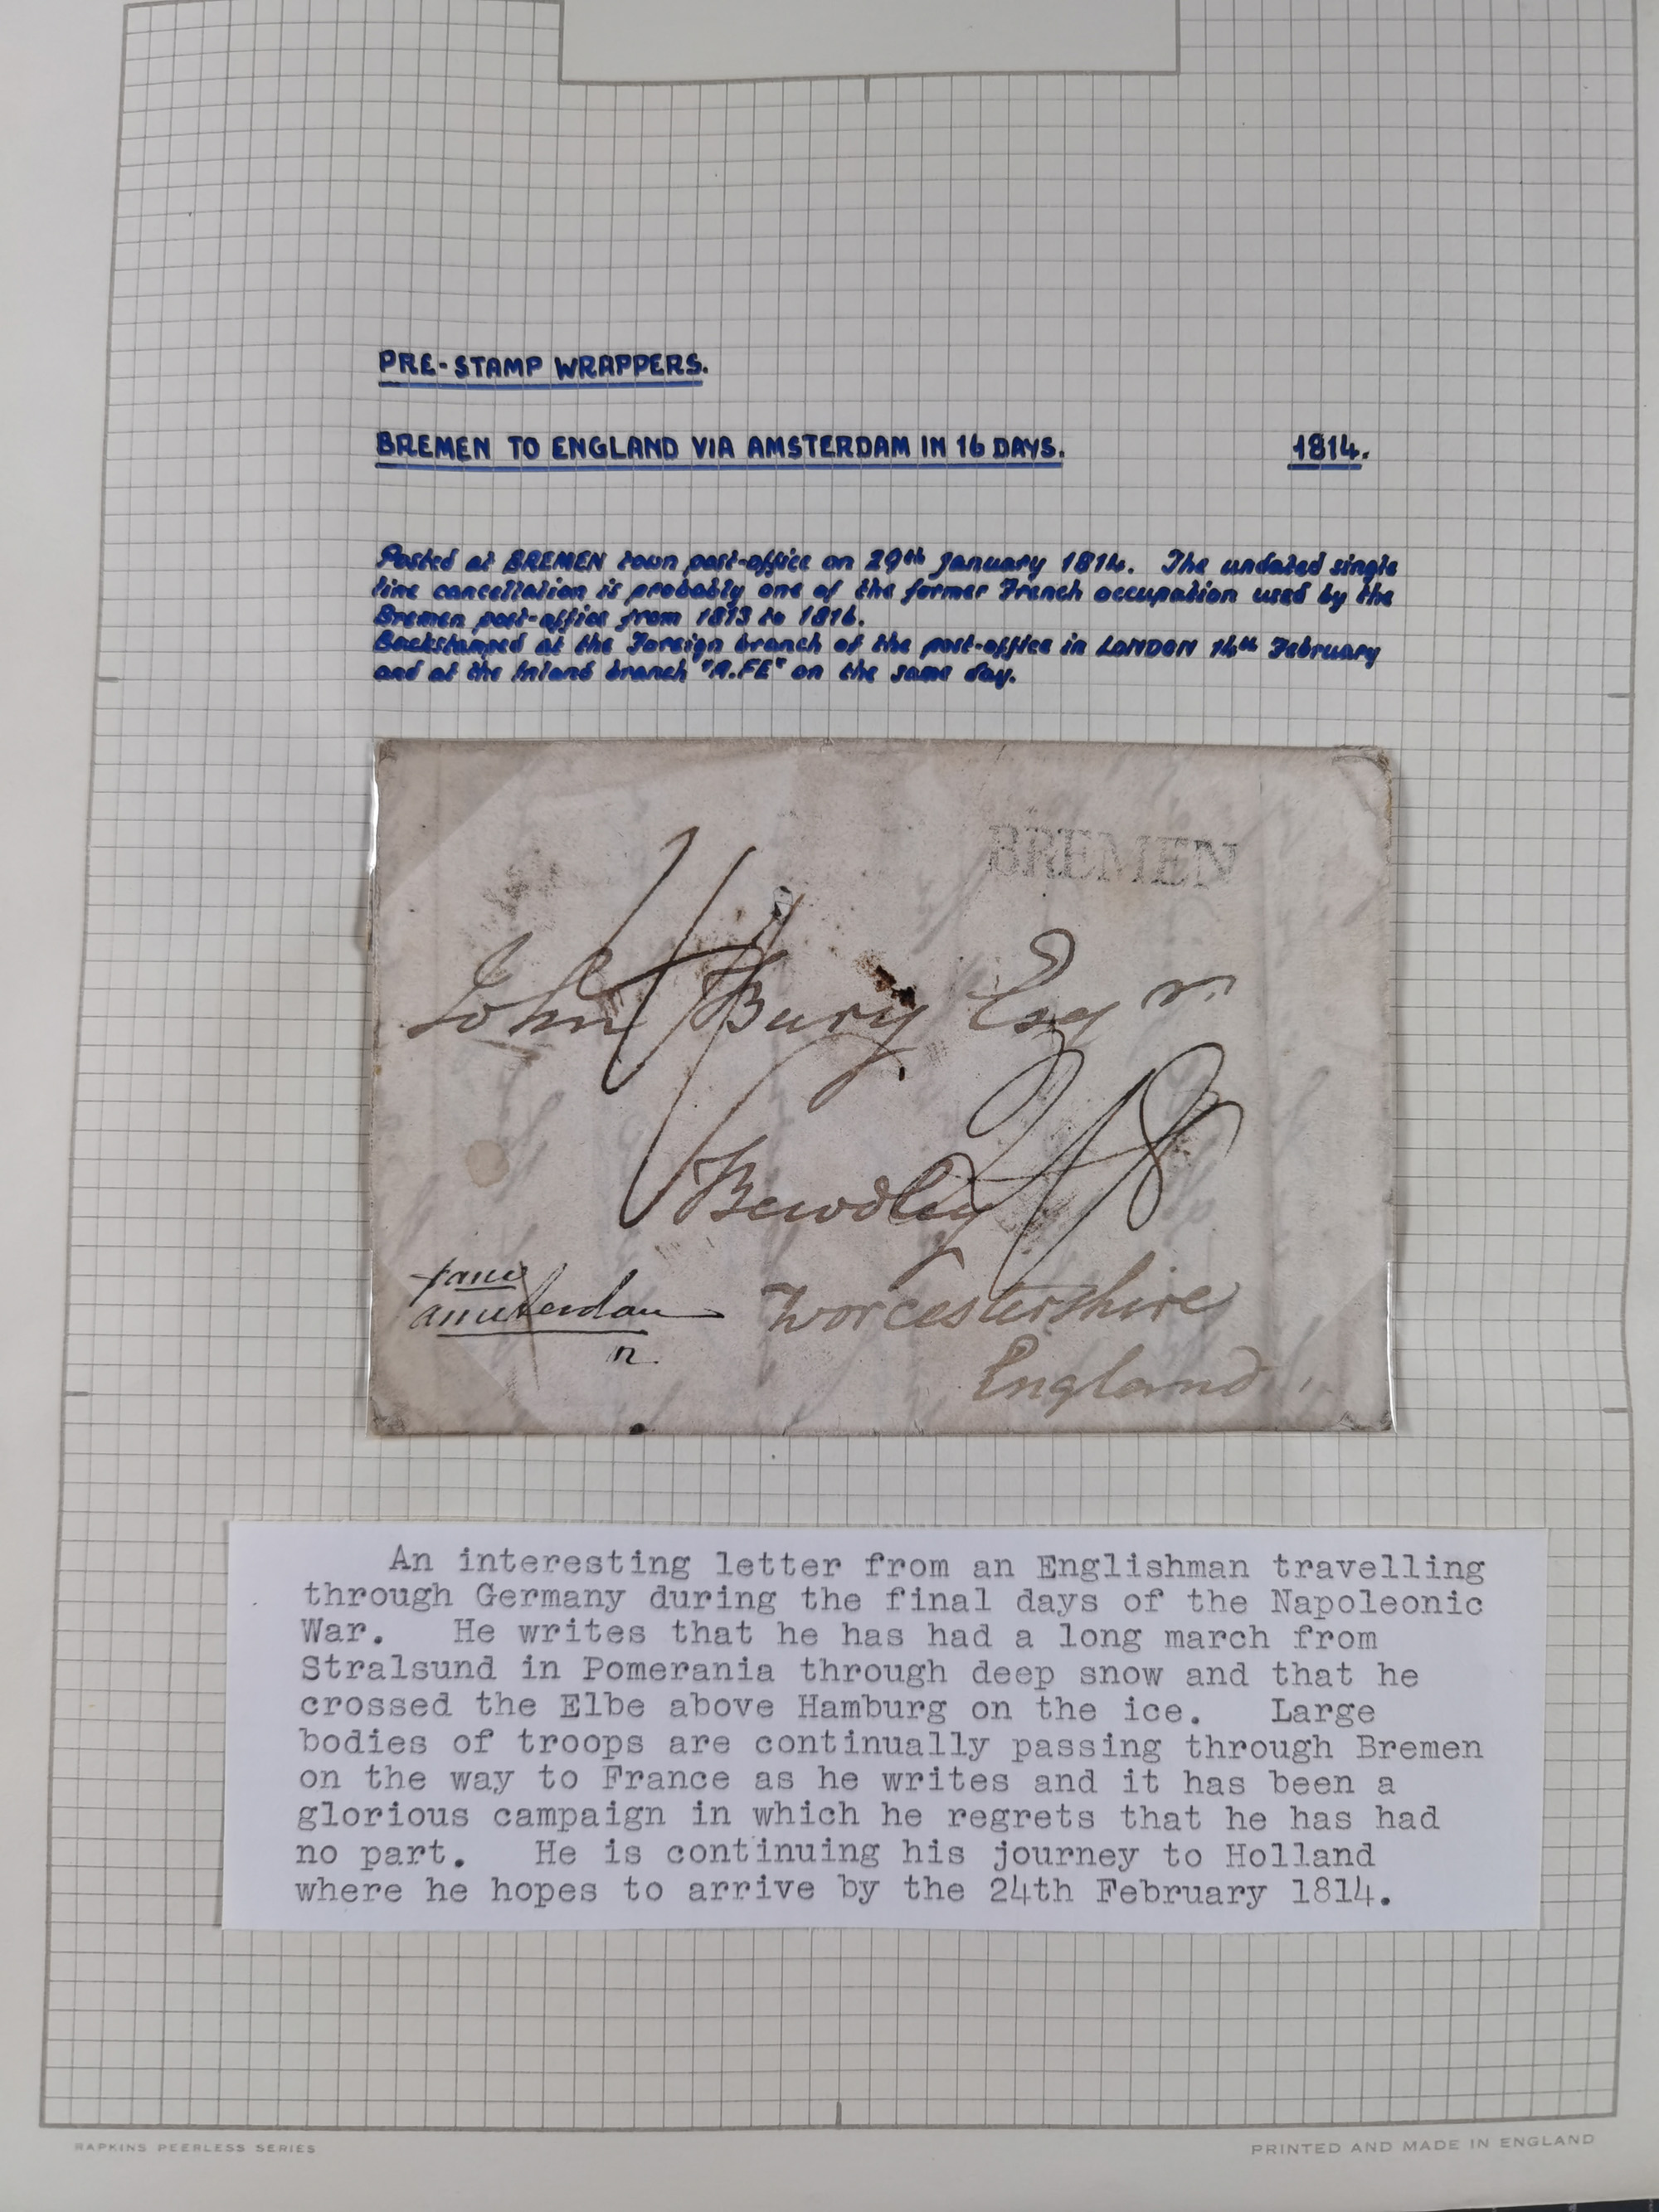 PRE-STAMP WRAPPERS.
BREMEN TO ENGLAND VIA AMSTERDAM IN 16 DAYS. 1814.
Posted at BREMEN town post-office on 29th January 1814. The undated single
line cancellation is probably one of the former French occupation used by the
Bremen post-office from 1813 to 1816.
Backstamped at the Foreign branch of the post-office in LONDON 14th February
and at the Inland branch "A.FE" on the same day.
BREMEN
John Bury Esqr
Bewdley
Amsterdam
Worcestershire
England
An interesting letter from an Englishman travelling
through Germany during the final days of the Napoleonic
War. He writes that he has had a long march from
Stralsund in Pomerania through deep snow and that he
crossed the Elbe above Hamburg on the ice. Large
bodies of troops are continually passing through Bremen
on the way to France as he writes and it has been a
glorious campaign in which he regrets that he has had
no part. He is continuing his journey to Holland
where he hopes to arrive by the 24th February 1814.
RAPKINS PEERLESS SERIES
PRINTED AND MADE IN ENGLAND